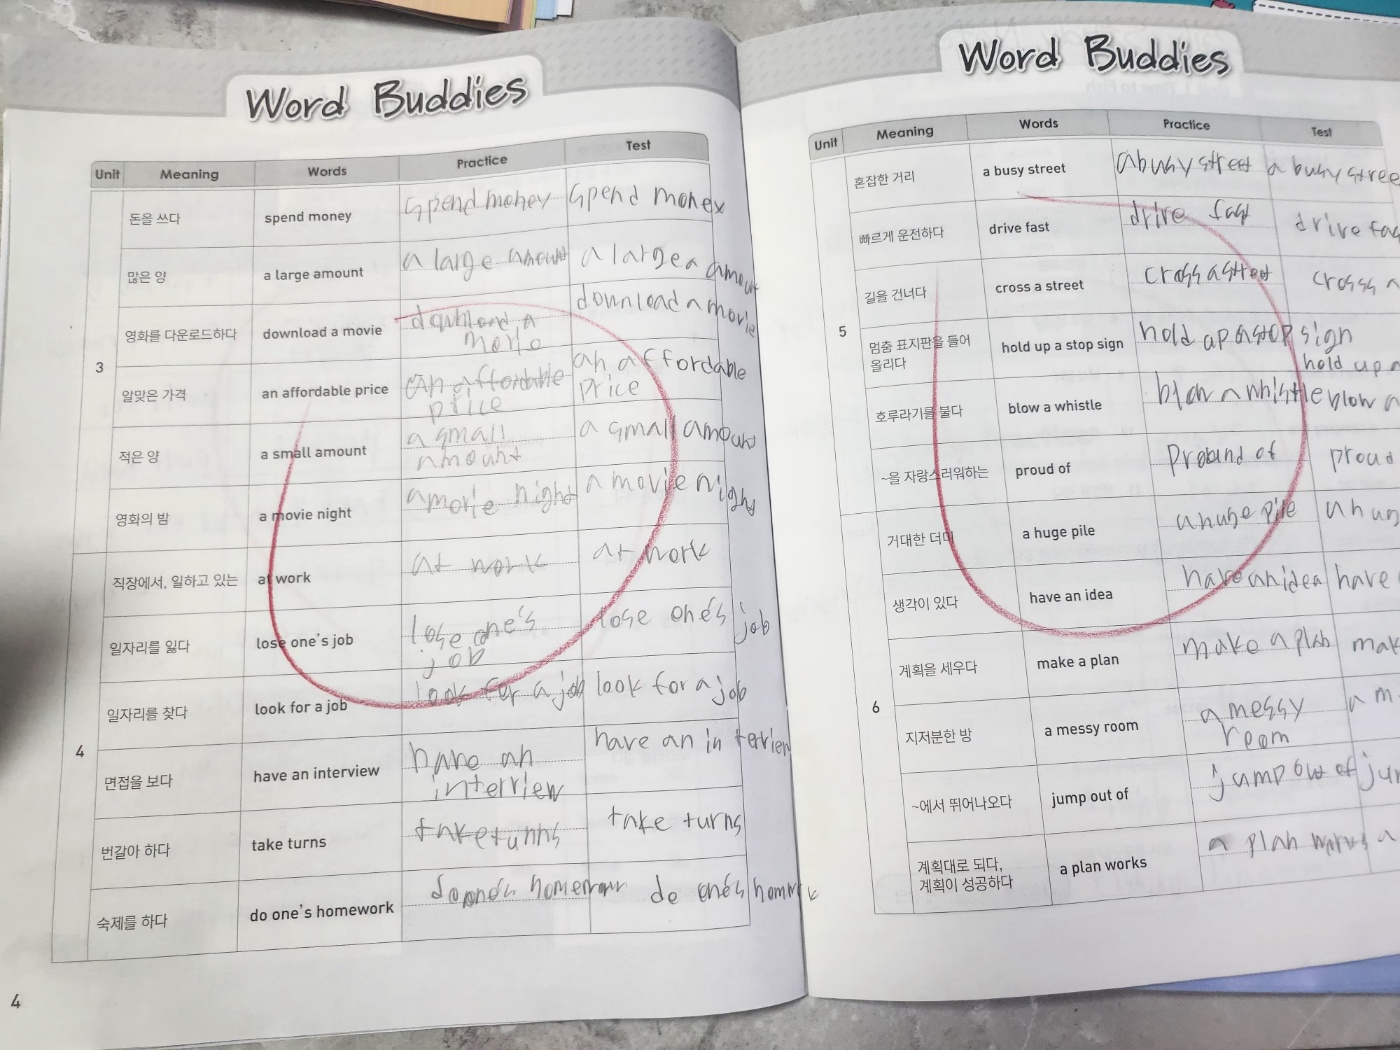 Word Buddies
Unit Meaning Words Practice Test
3
돈을 쓰다 spend money spend money spend money
많은 양 a large amount a large amount a large a amount
영화를 다운로드하다 download a movie download a download a movie
movie
알맞은 가격 an affordable price an affordable an affordable
price price
적은 양 a small amount a small a small amount
amount
영화의 밤 a movie night a movie night a movie night
4
직장에서, 일하고 있는 at work at work at work
일자리를 잃다 lose one's job lose one's lose one's job
job
일자리를 찾다 look for a job look for a job look for a job
면접을 보다 have an interview have an have an in terview
interview
번갈아 하다 take turns take turns take turns
숙제를 하다 do one's homework do one's do one's
4
Word Buddies
Unit Meaning Words Practice Test
5
혼잡한 거리 a busy street a busy street a busy stree
빠르게 운전하다 drive fast drive fast drive fas
길을 건너다 cross a street cross a street cross a
멈춤 표지판을 들어 hold up a stop sign hold up a stop sign
올리다 hold up a
호루라기를 불다 blow a whistle blow a whistle blow a
~을 자랑스러워하는 proud of proud of proud
6
거대한 더미 a huge pile a huge pile a hu
생각이 있다 have an idea have an idea have
계획을 세우다 make a plan make a plan mak
지저분한 방 a messy room a messy a m
room
~에서 뛰어나오다 jump out of jump out of jum
계획대로 되다, a plan works a plan works a
계획이 성공하다